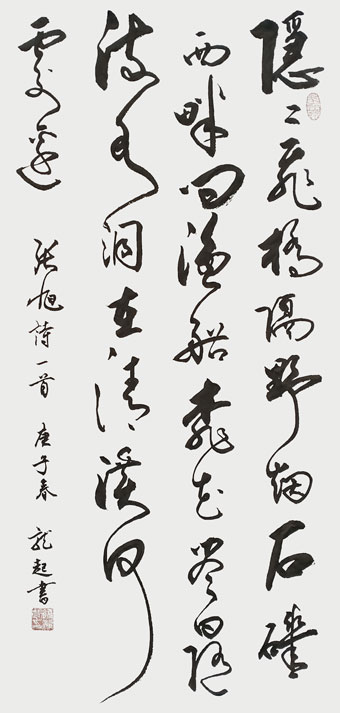 隱〻飛橋隔野烟石磯
西畔問漁船桃花盡日隨
流水洞在清溪何
處邊
張旭詩一首 庚子春 龍起書